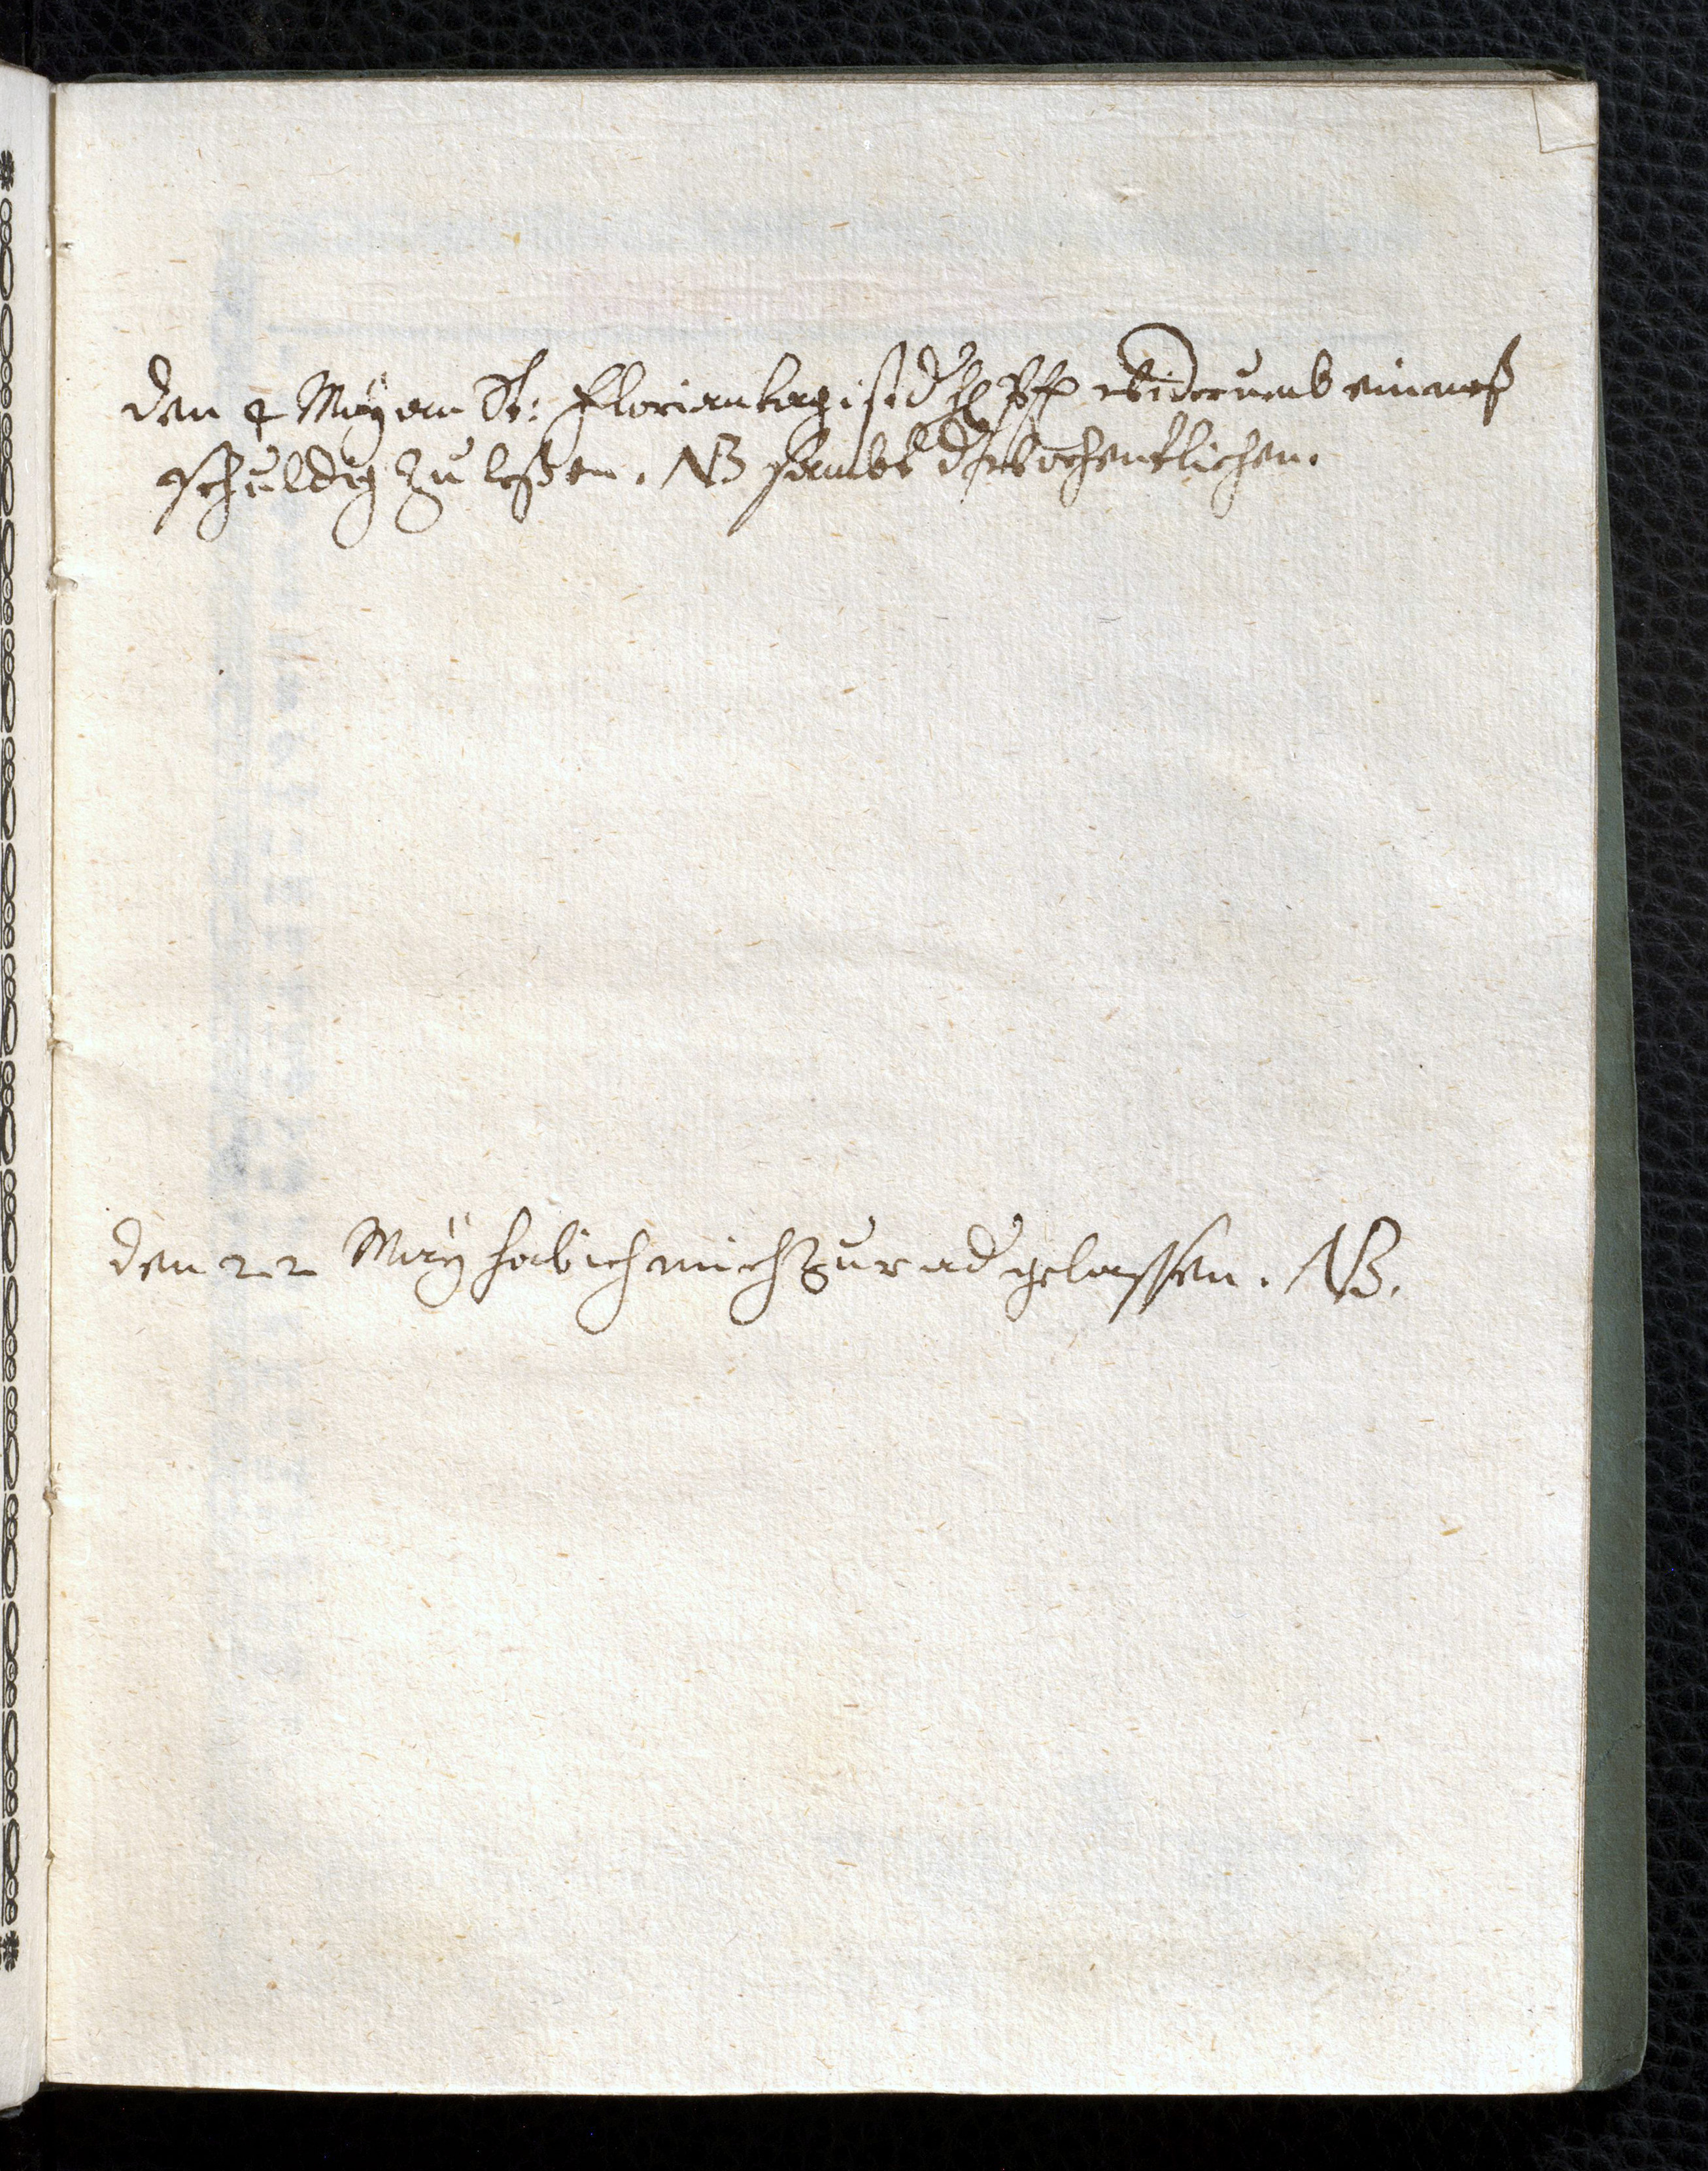 den 4 Maÿ am St: Floriantag ist d H Pfr widerumb ein meß
schuldig zu leßen. NB sambt d wochentlichen.
den 22 Maÿ hab ich mich zur ad gelassen. NB.